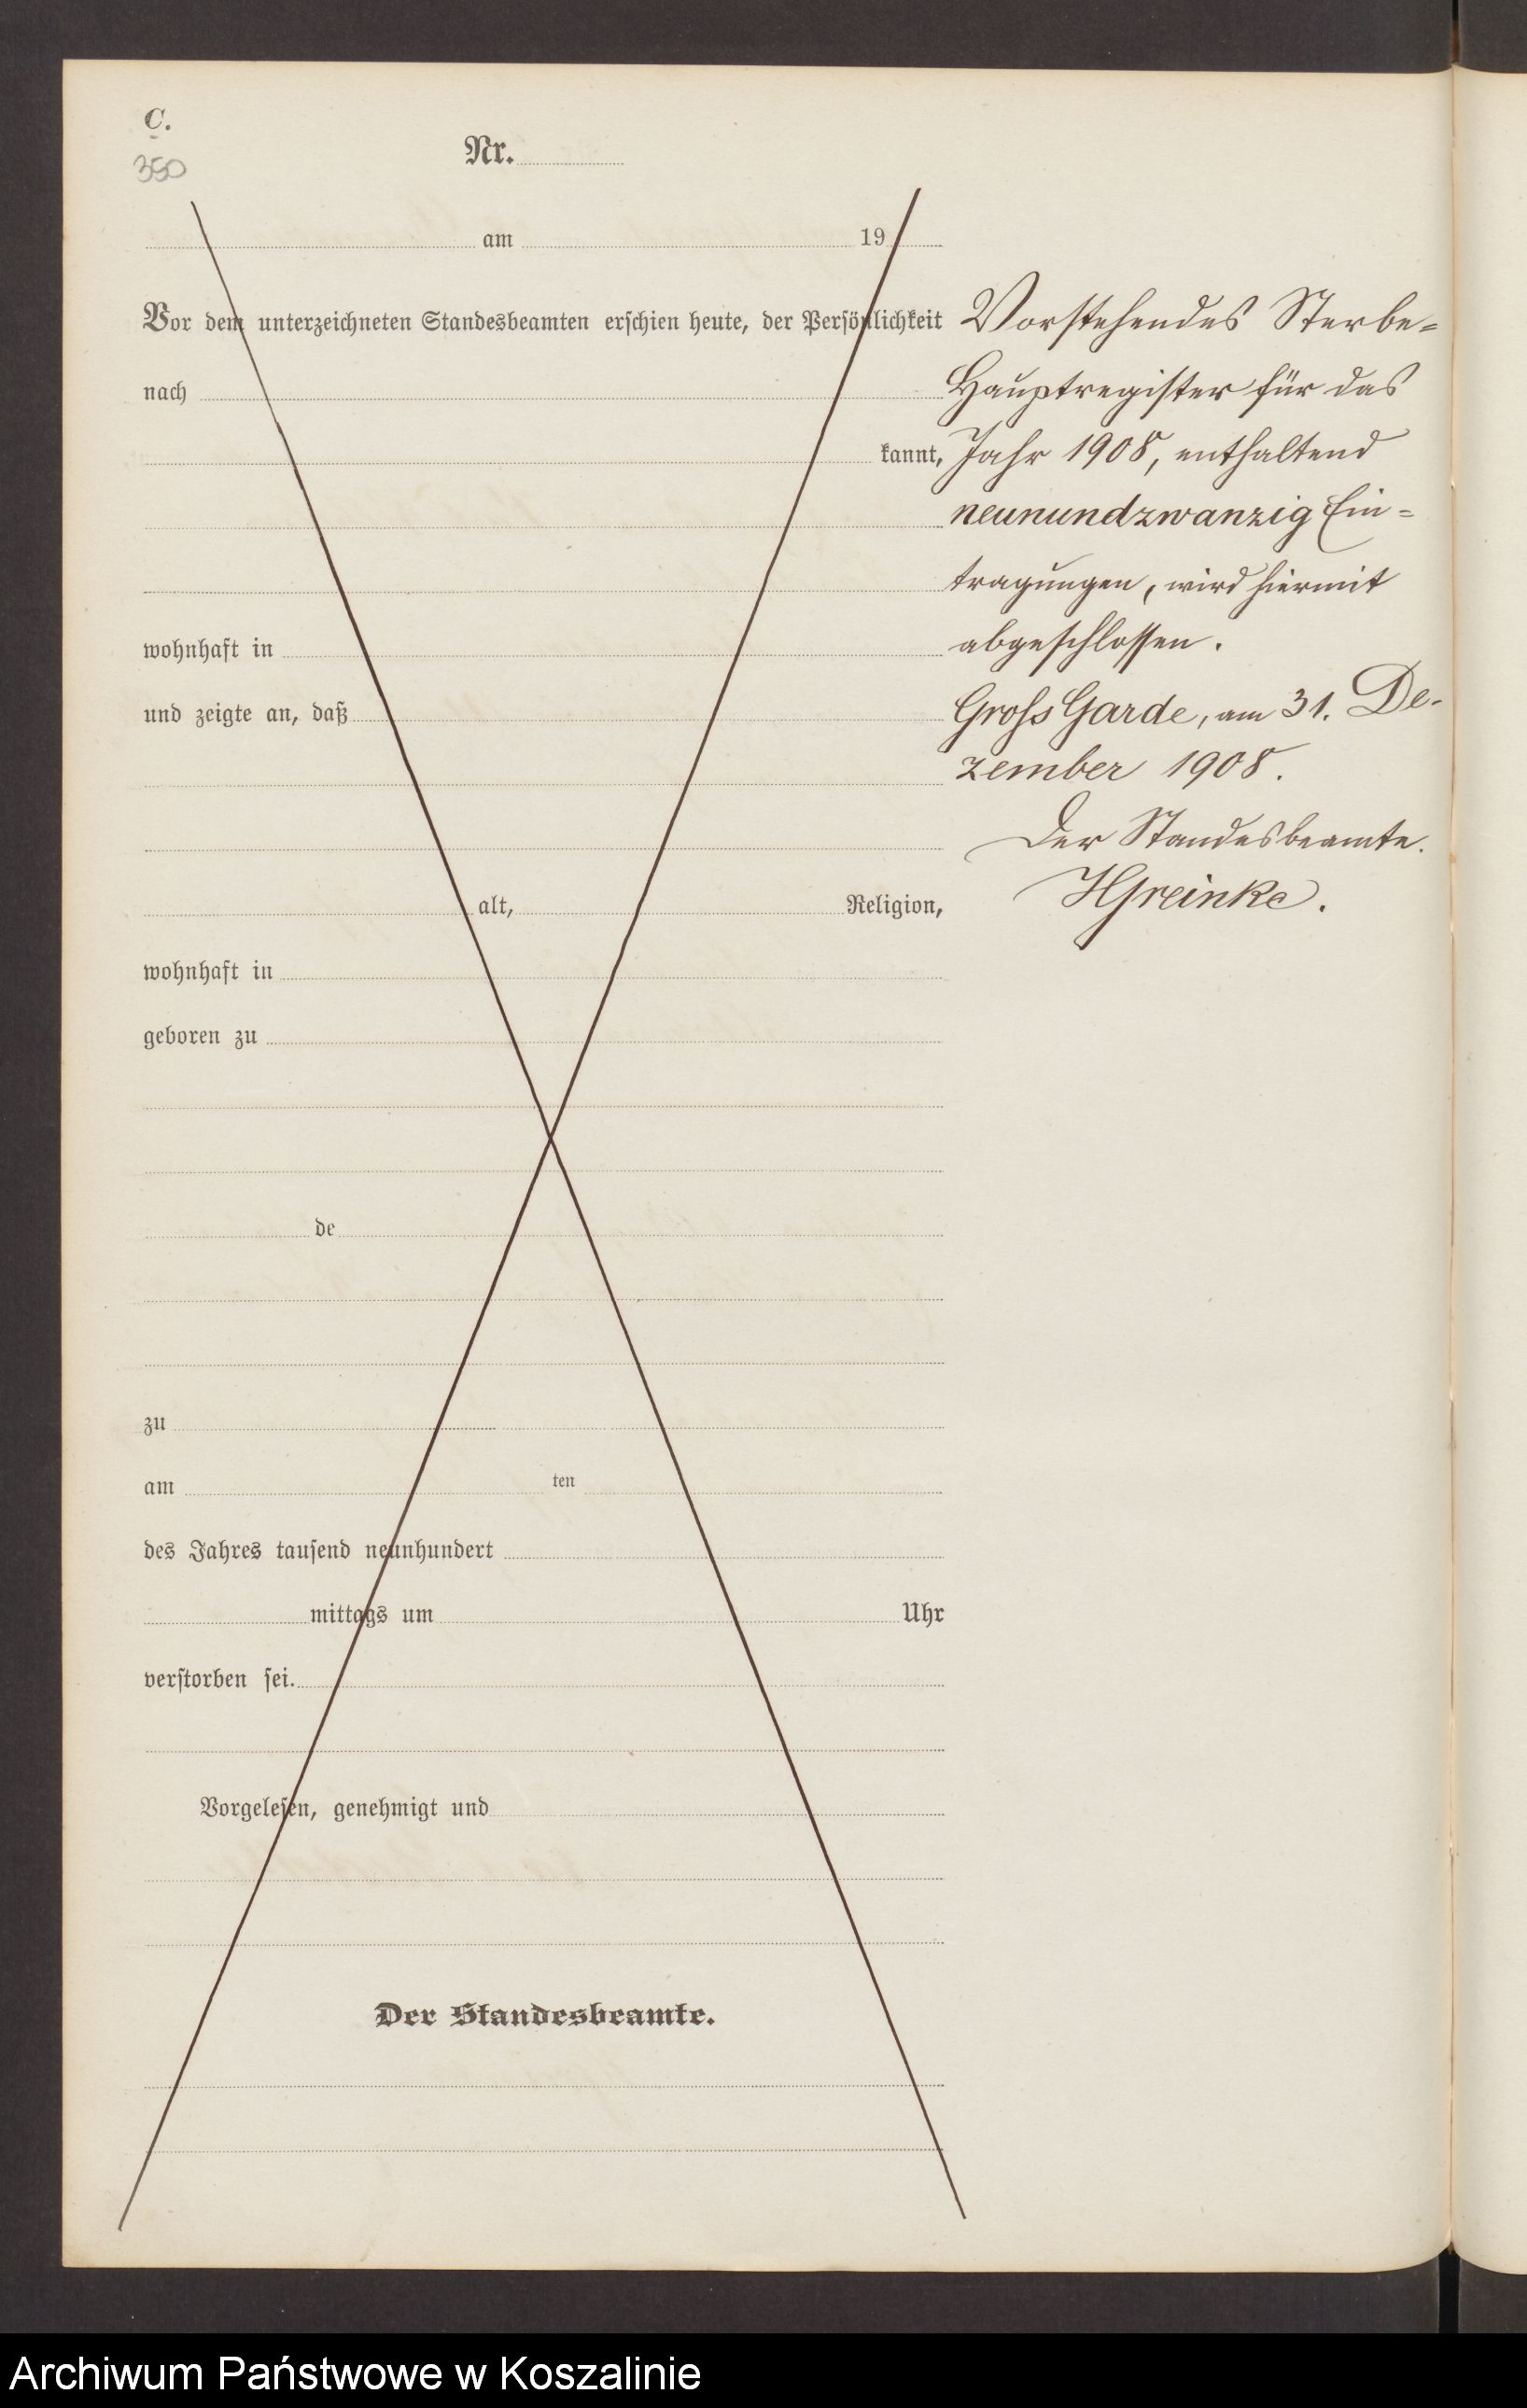 C.
350
Nr.
am 19
Vor dem unterzeichneten Standesbeamten erschien heute, der Persönlichkeit
nach
kannt,
wohnhaft in
und zeigte an, daß
alt, Religion,
wohnhaft in
geboren zu
de
zu
am ten
des Jahres tausend neunhundert
mittags um Uhr
verstorben sei.
Vorgelesen, genehmigt und
Der Standesbeamte.
Vorstehendes Sterbe=
Hauptregister für das
Jahr 1908, enthaltend
neunundzwanzig Ein=
tragungen, wird hiermit
abgeschlossen.
Gross Garde, am 31. De-
zember 1908.
Der Standesbeamte.
Archiwum Państwowe w Koszalinie